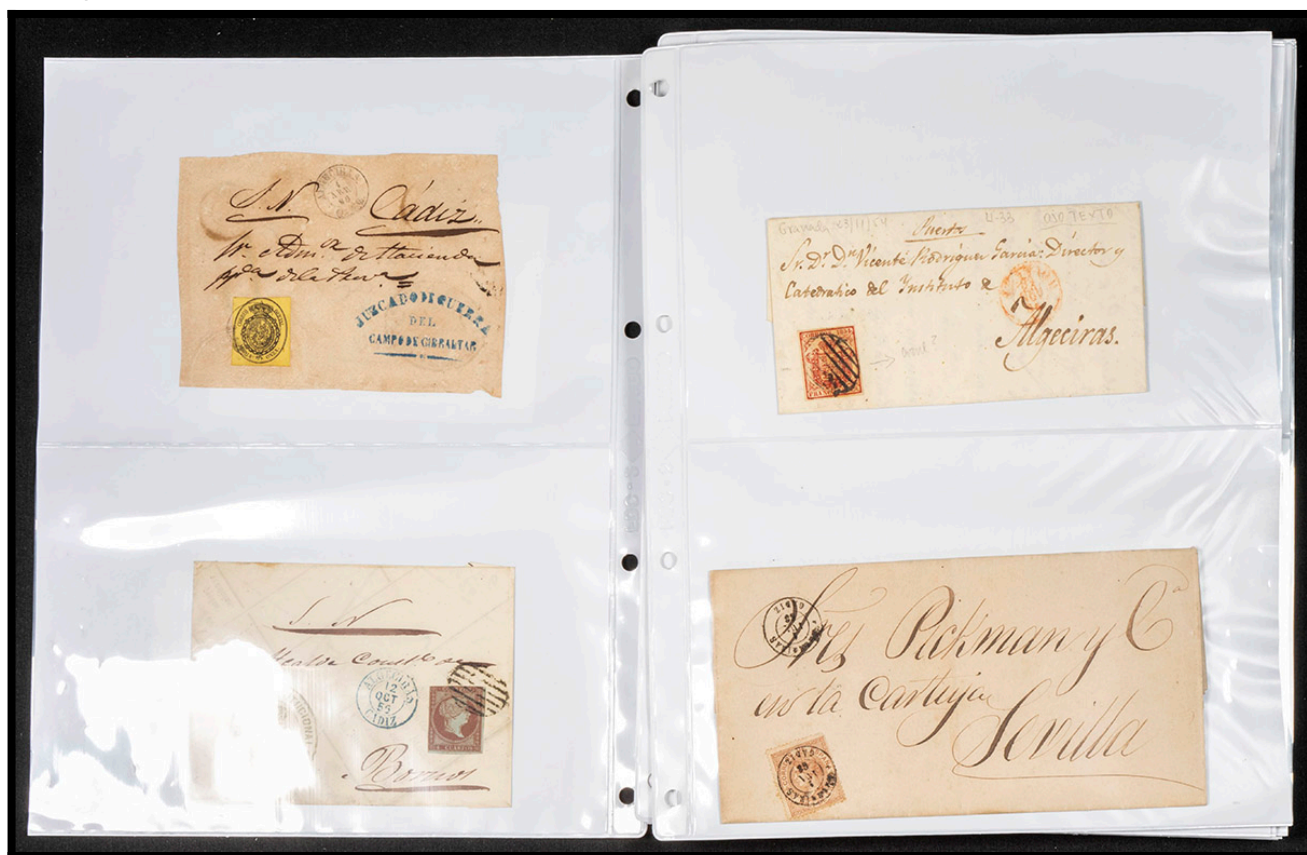 S. N. Cádiz
Sr. Admor. de Hacienda
ppca de la Prova.
JUZGADO DE GUERRA
DEL
CAMPO DE GIBRALTAR
Granada 23/11/54
U-33
OJO TEXTO
Puerto
Sr. Dr. Dn. Vicente Rodriguez Garcia: Director y
Catedratico del Instituto de
Algeciras.
S. N.
Alcalde Constl. de
ALGECIRAS
12
OCT
CADIZ
Bornos
CADIZ
Sres Pickman y Ca
en la Cartuja
Sevilla